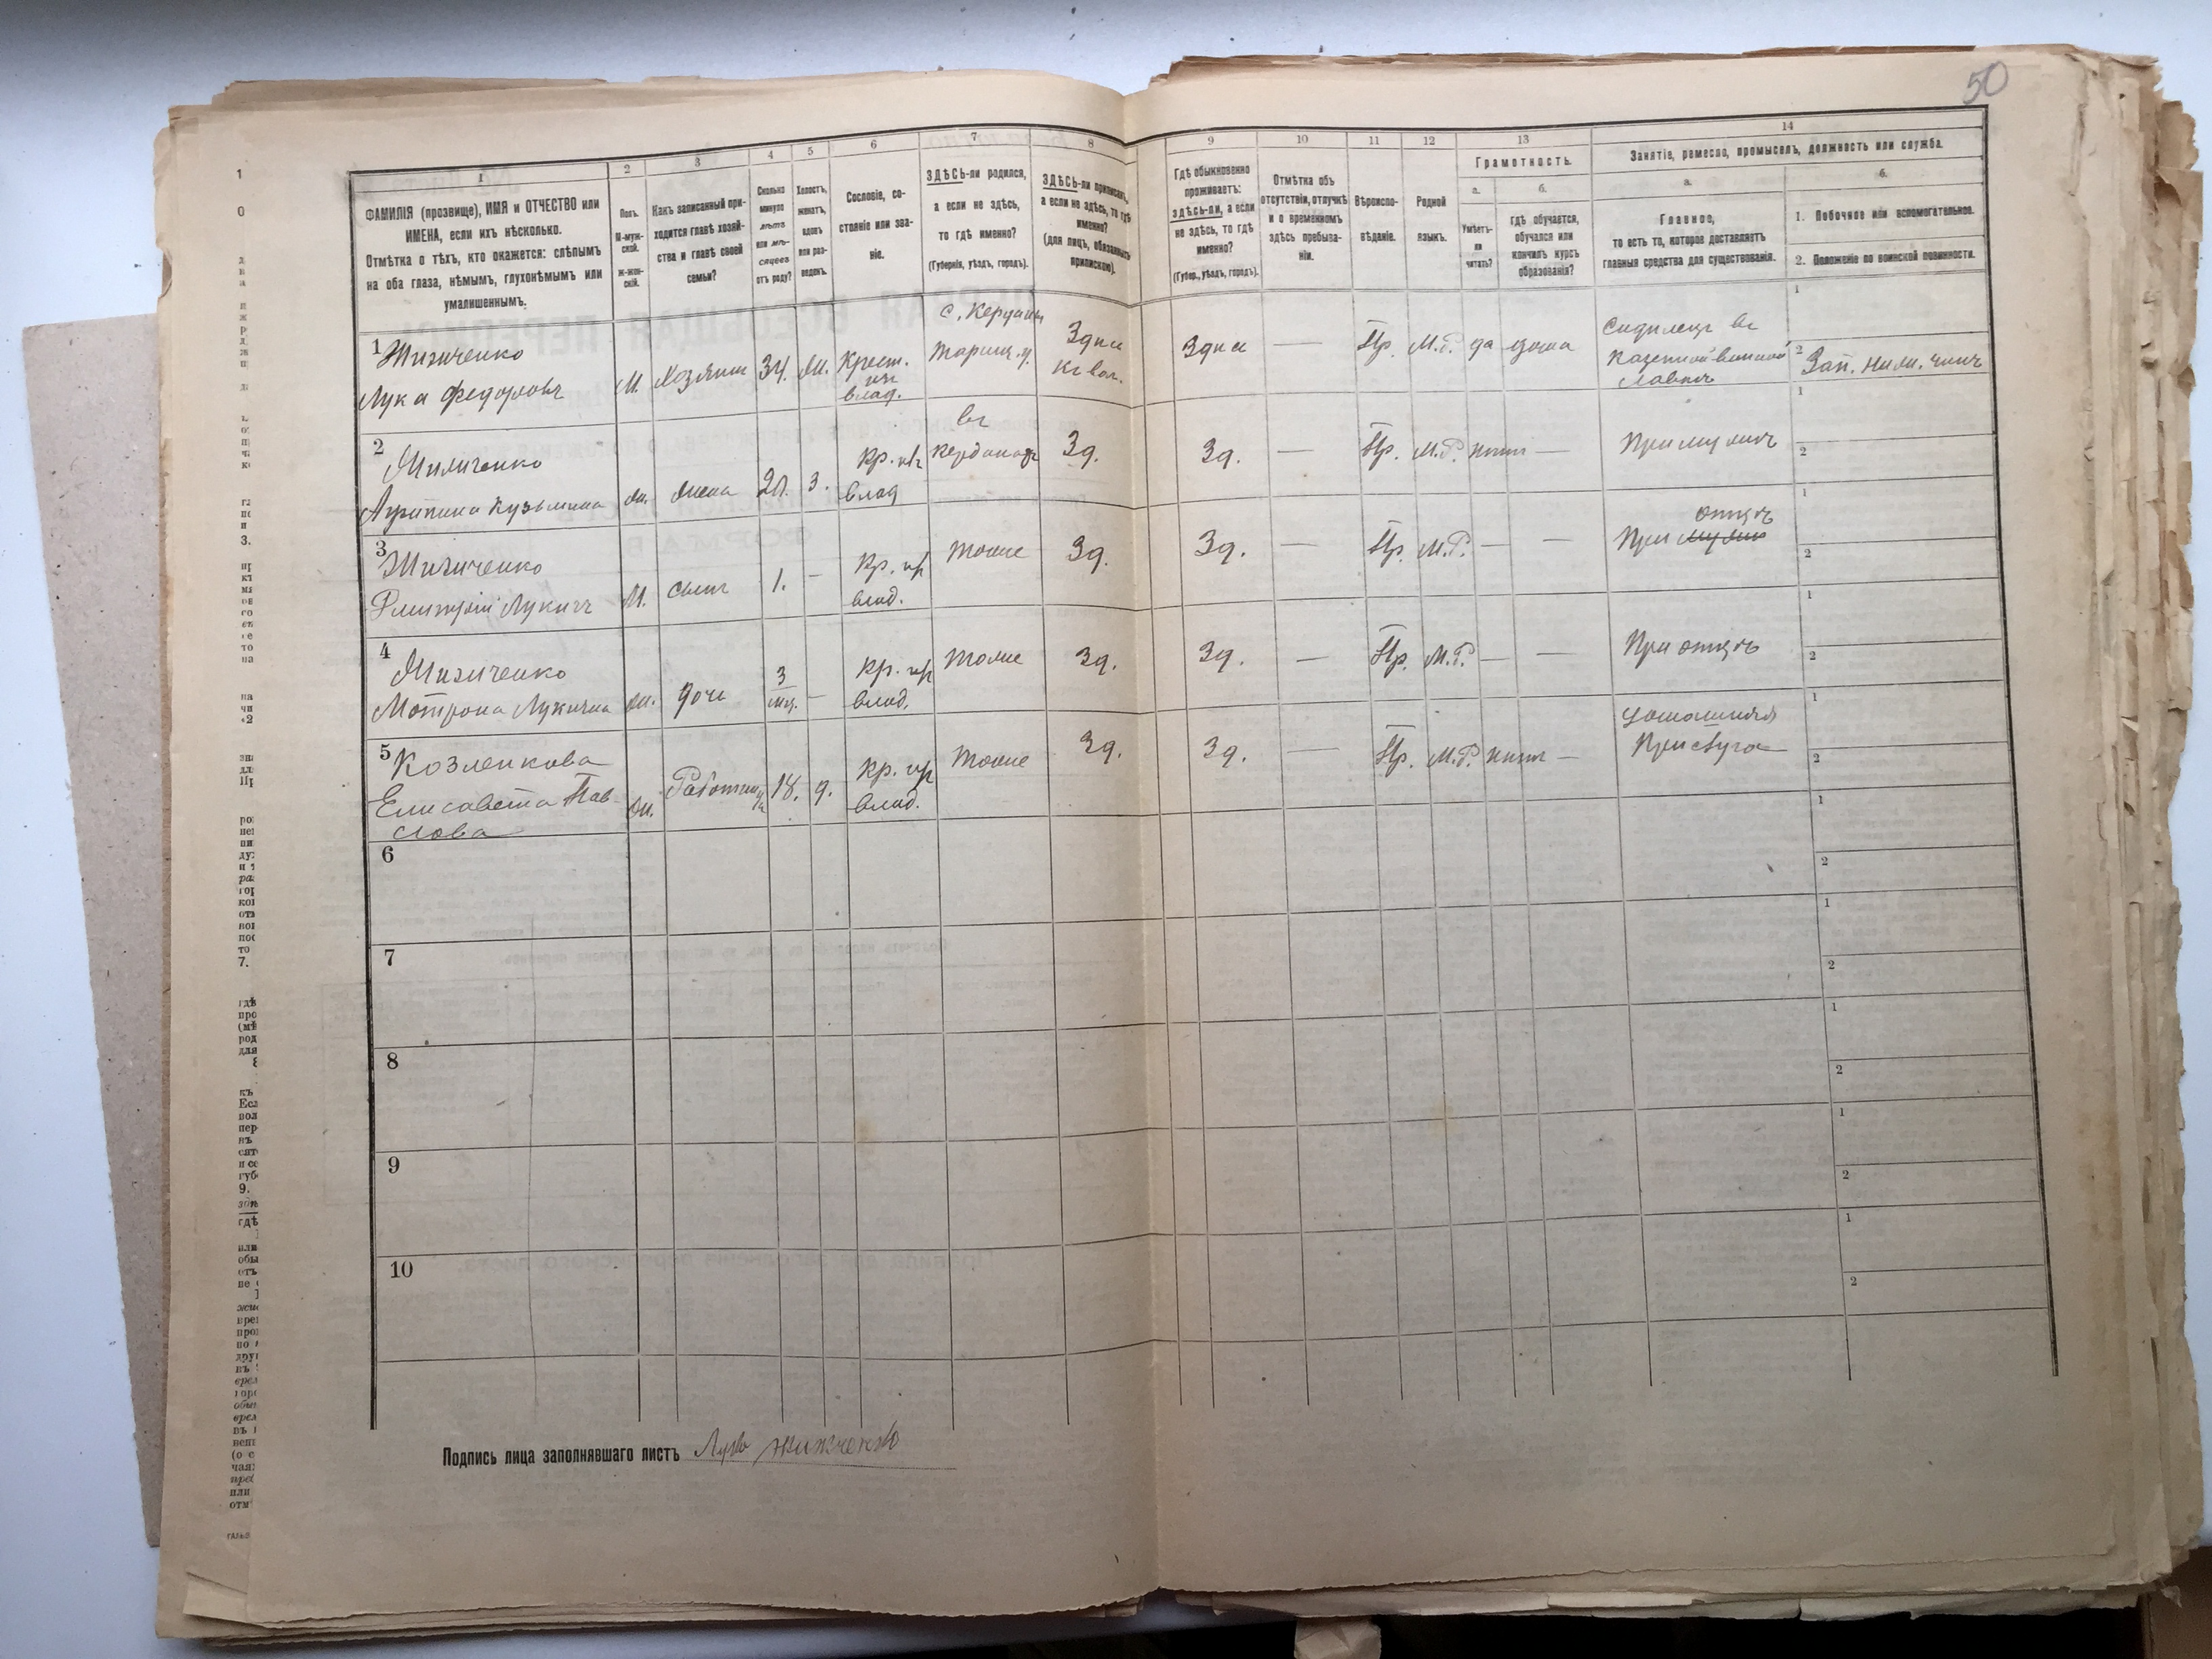 50
1 2 3 4 5 6 7 8 9 10 11 12 13 14
ФАМИЛІЯ (прозвище), ИМЯ и ОТЧЕСТВО или
ИМЕНА, если ихъ нѣсколько.
Отмѣтка о тѣхъ, кто окажется: слѣпымъ
на оба глаза, нѣмымъ, глухонѣмымъ или
умалишеннымъ.
Полъ.
М-муж-
ской.
Ж-жен-
скій.
Какъ записанный при-
ходится главѣ хозяй-
ства и главѣ своей
семьи?
Сколько
минуло
лѣтъ
или мѣ-
сяцевъ
отъ роду?
Холостъ,
женатъ,
вдовъ
или раз-
веденъ.
Сословіе, со-
стояніе или зва-
ніе.
ЗДѢСЬ-ли родился,
а если не здѣсь,
то гдѣ именно?
(Губернія, уѣздъ, городъ).
ЗДѢСЬ-ли приписанъ,
а если не здѣсь, то гдѣ
именно?
(для лицъ, обязанныхъ
припискою).
Гдѣ обыкновенно
проживаетъ:
здѣсь-ли, а если
не здѣсь, то гдѣ
именно?
(Губер., уѣздъ, городъ).
Отмѣтка объ
отсутствіи, отлучкѣ
и о временномъ
здѣсь пребыва-
ніи.
Вѣроиспо-
вѣданіе.
Родной
языкъ.
Грамотность.
а.
Умѣетъ-
ли
читать?
б.
гдѣ обучается,
обучался или
кончилъ курсъ
образованія?
Занятіе, ремесло, промыселъ, должность или служба.
а.
Главное,
то есть то, которое доставляетъ
главныя средства для существованія.
б.
1. Побочное или вспомогательное.
2. Положеніе по воинской повинности.
1 Жижченко
Лука Федоровъ
М. Хозяинъ 34. Ж. Крест.
изъ
влад.
Здѣсь
Здѣсь — Пр. М.Р. да дома
Сидѣлецъ въ
казенной винной
лавкѣ
1
2 Зап. нижн. чинъ
2 Жижченко
Кузьмина ж. жена 3. Кр. изъ
влад
въ
Зд.
Зд. — Пр. М.Р. нѣтъ — При мужѣ
1
2
3 Жижченко
Дмитрій Лукичъ М. сынъ 1. — Кр. из
влад.
тоже Зд.
Зд. — Пр. М.Р. — —
отцѣ
При мужѣ
1
2
4 Жижченко
Мотрона Лукична ж. дочь 3
мц. — Кр. из
влад.
тоже Зд.
Зд. — Пр. М.Р. — — При отцѣ
1
2
5 Козленкова
Елисавета Пав
лова
ж. Работница 18. д. Кр. из
влад.
тоже Зд.
Зд. — Пр. М.Р. нѣтъ —
домашняя
Прислуга
1
2
6
1
2
7
1
2
8
1
2
9
1
2
10
1
2
Подпись лица заполнявшаго листъ Лука Жижченко